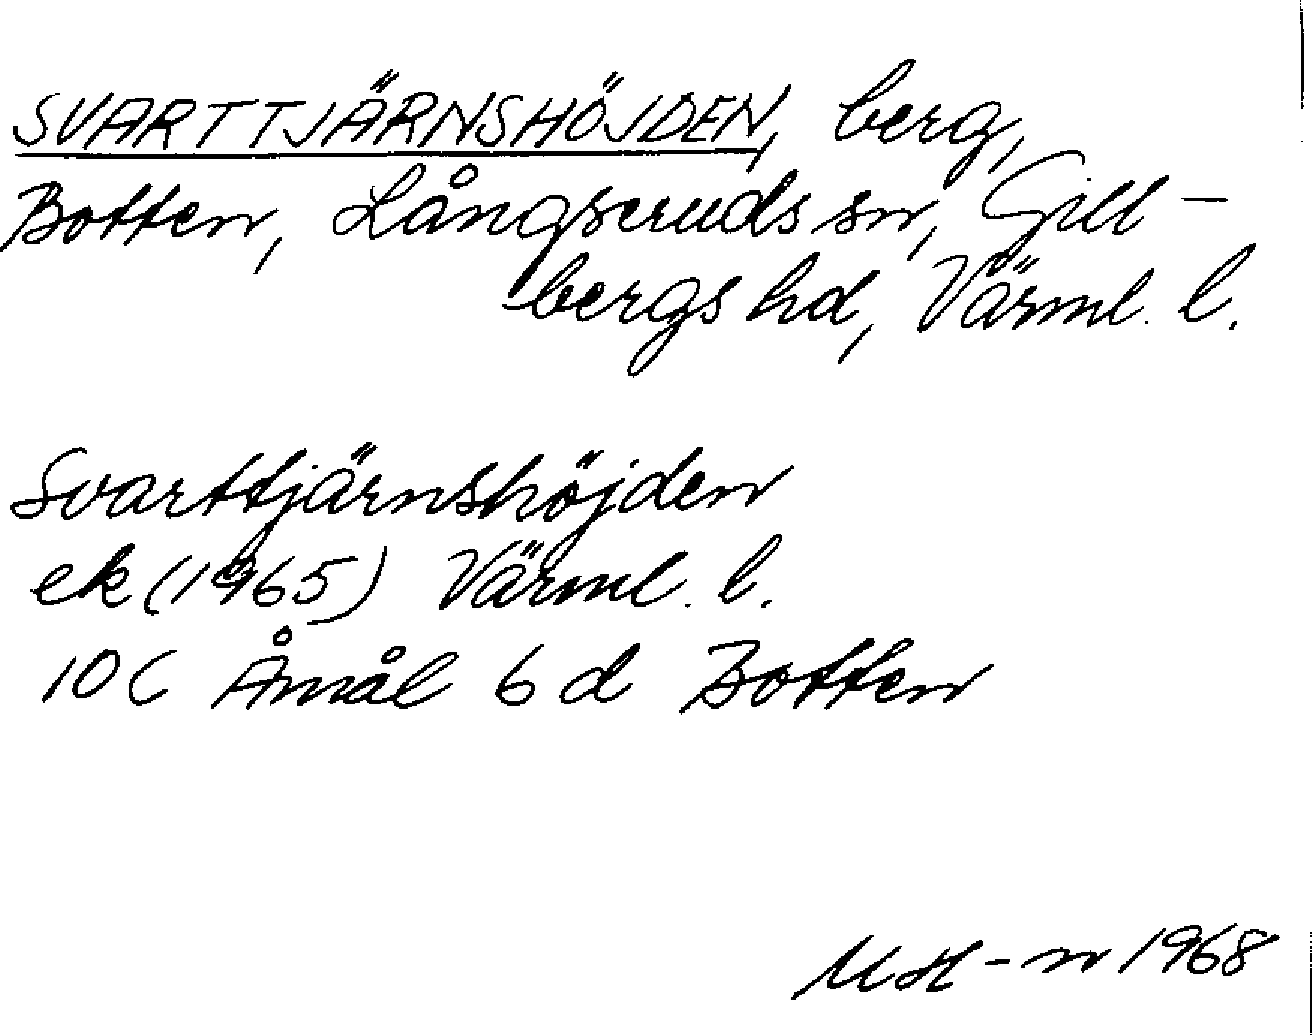 SVARTTJÄRNSHÖJDEN, berg,
Botten, Långseruds sn, Gill-
bergs hd, Värml. l.
Svarttjärnshöjden
ek (1965) Värml. l.
10 C Åmål 6 d Botten
MH-n 1968